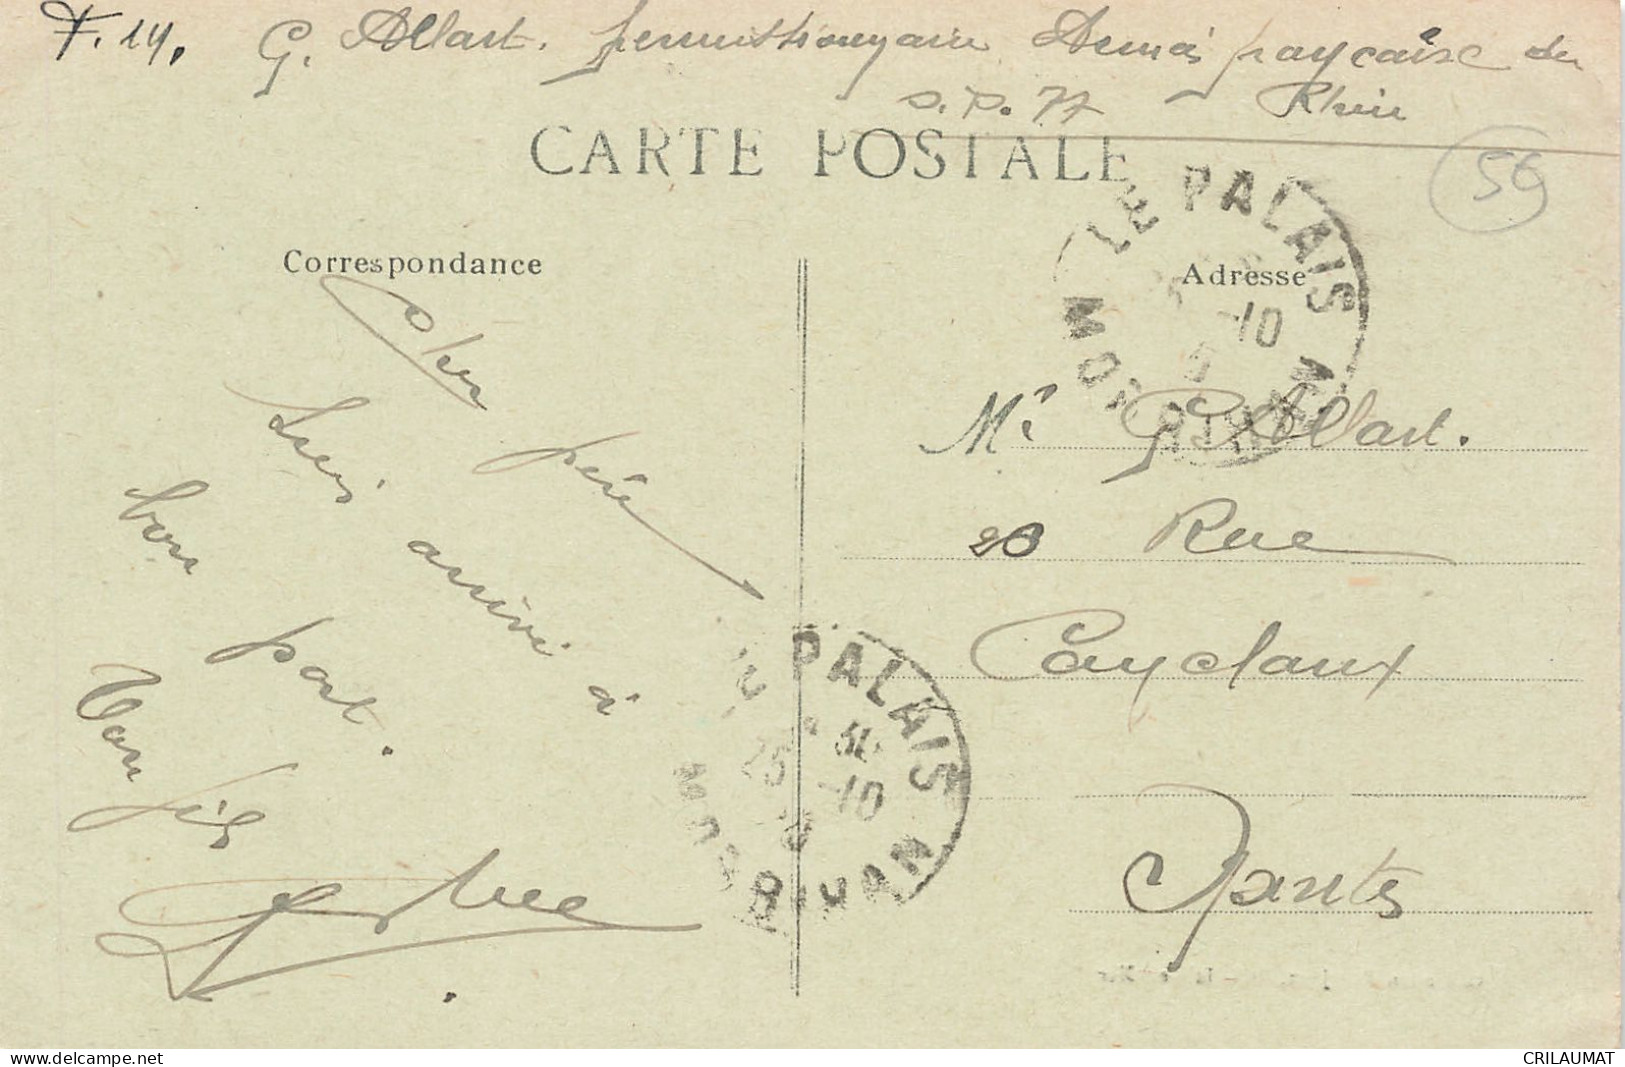 F. 14. G. Allart. permissionnaire Armée française du
S.P. 77 - Rhin
CARTE POSTALE
56
LE PALAIS
MORBIHAN
-10
Correspondance
Adresse
Cher père
Suis arrivé à
bon port.
Ton fils
Mr G. Allart.
20 Rue
Cayclaux
Nantes
LE PALAIS
30
25 -10
MORBIHAN
www.delcampe.net
CRILAUMAT